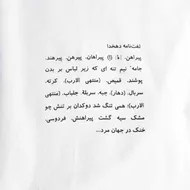 لغت‌نامه دهخدا
پیراهن. [هَ] (اِ) پیراهان. پیرهن. پیرهند.
جامه ٔ نیم تنه ای که زیر لباس بر بدن
پوشند. قمیص. (منتهی الارب). کرته.
سربال. (دهار). جبه. سربلة. جلباب. (منتهی
الارب): همی تنگ شد دوکدان بر تنش چو
مشک سیه گشت پیراهنش. فردوسی.
خنک در جهان مرد...